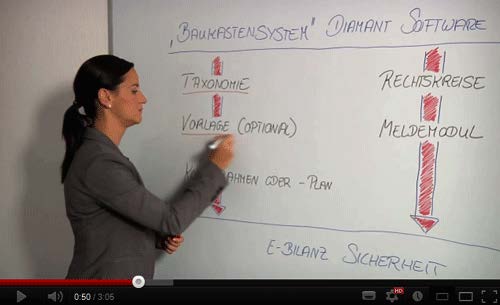 „BAUKASTENSYSTEM" DIAMANT SOFTWARE
TAXONOMIE
VORLAGE (OPTIONAL)
ODER -PLAN
RECHTSKREISE
MELDEMODUL
E-BILANZ SICHERHEIT
0:50 / 3:05
HD